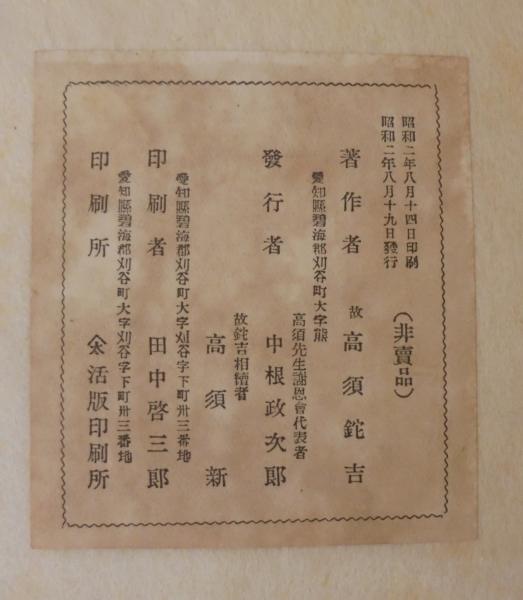 昭和二年八月十四日印刷
昭和二年八月十九日發行
(非賣品)
著作者 故 高須鉈吉
愛知縣碧海郡刈谷町大字熊
高須先生謝恩會代表者
發行者 中根政次郎
故鉈吉相續者
高須新
愛知縣碧海郡刈谷町大字刈谷字下町卅三番地
印刷者 田中啓三郎
愛知縣碧海郡刈谷町大字刈谷字下町卅三番地
印刷所 活版印刷所